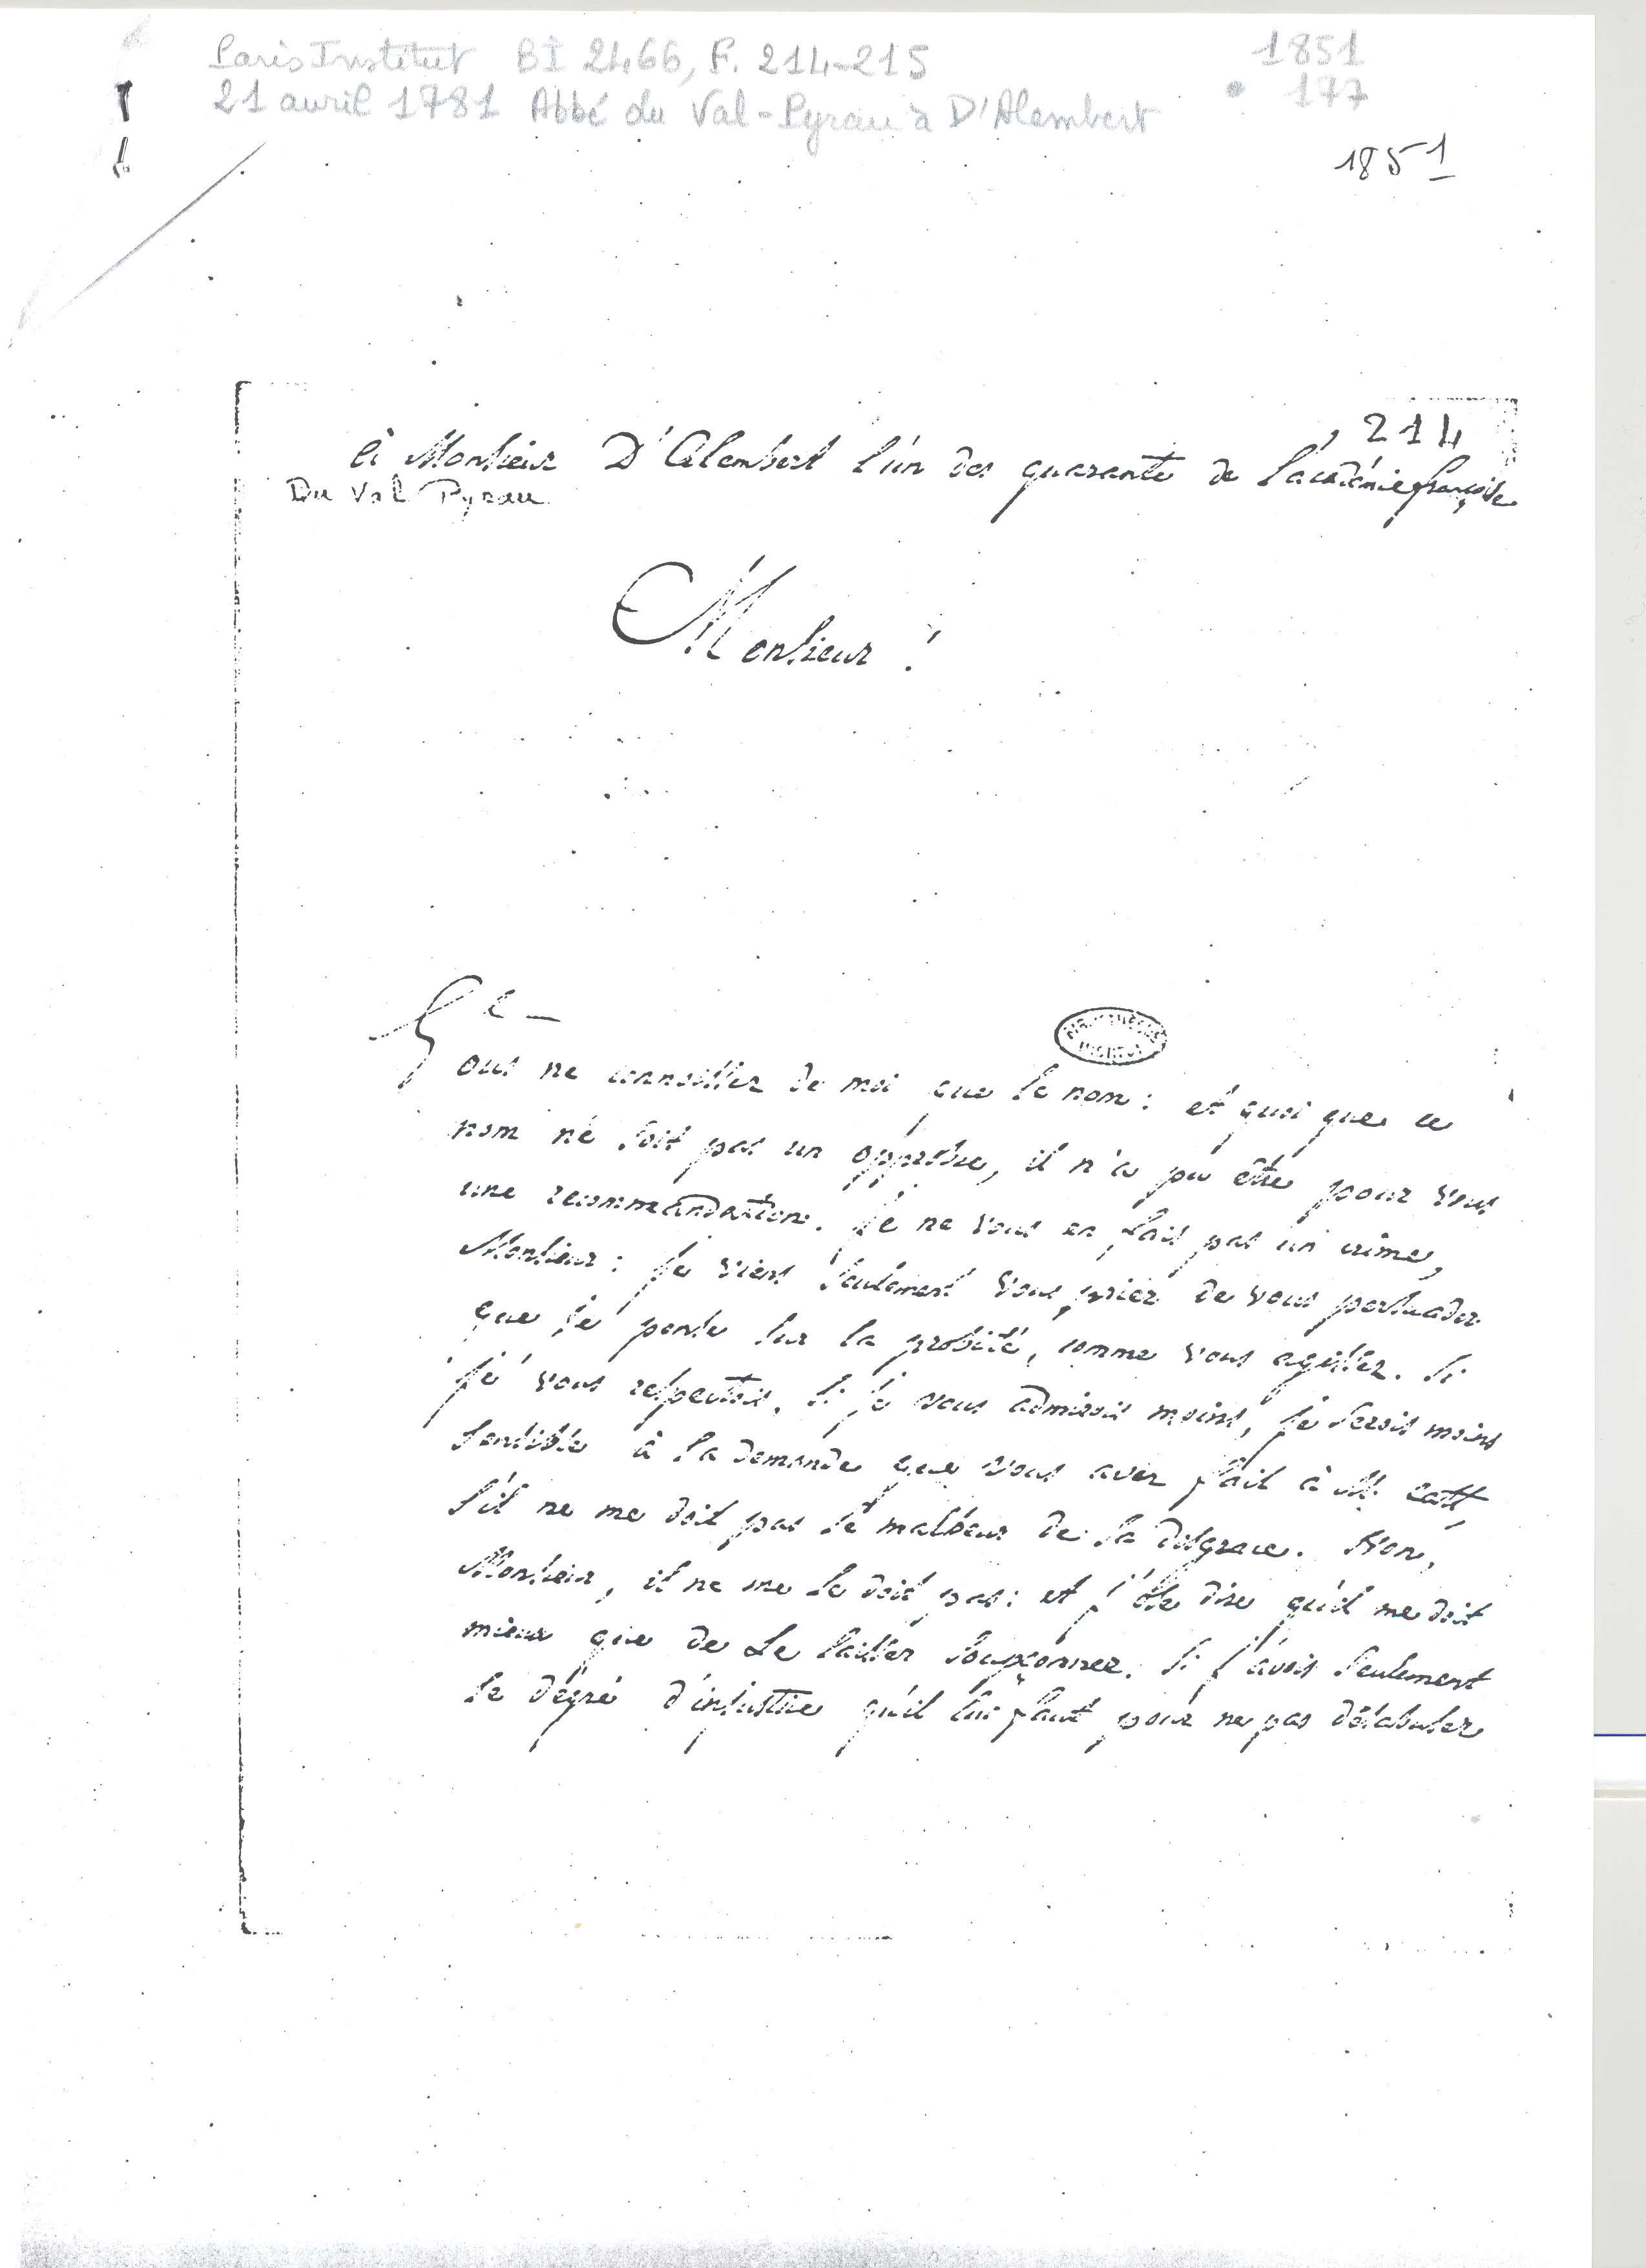 Paris Institut BI 2466, F. 214-215
1851
21 avril 1781 Abbé du Val-Pyrau à D'Alembert
177
1851
214
à Monsieur D'Alembert l'un des quarante de l'académie françoise
Du Val Pyrau
Monsieur !
Vous ne connoissiez de moi que le nom : et quoi que ce
nom ne soit pas un opprobre, il n'a pu être pour vous
une recommandation. Je ne vous en fais pas un crime,
Monsieur : je viens seulement vous prier de vous persuader
que je pense sur la probité, comme vous agissez. Si
je vous respectois, si je vous admirois moins, je serois moins
sensible à la demande que vous avez fait à M. Catt,
s'il ne me doit pas le malheur de sa disgrace. Non,
Monsieur, il ne me le doit pas : et j'ose dire qu'il me doit
mieux que de le laisser soupçonner. Si j'avois seulement
le dégré d'injustice qu'il lui faut pour ne pas désabuser